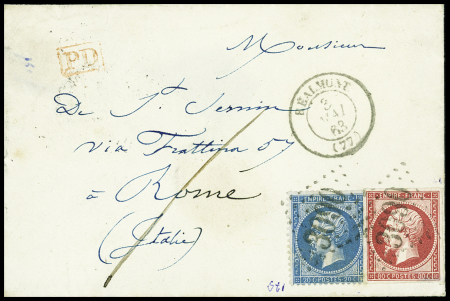 PD
Monsieur
REALMONT
MAI
63
(77)
De St. Sernin
via Frattina 57
à Rome
(Italie)
EMPIRE FRANC
20 C POSTES 20 C
EMPIRE FRANC
80 C POSTES 80 C